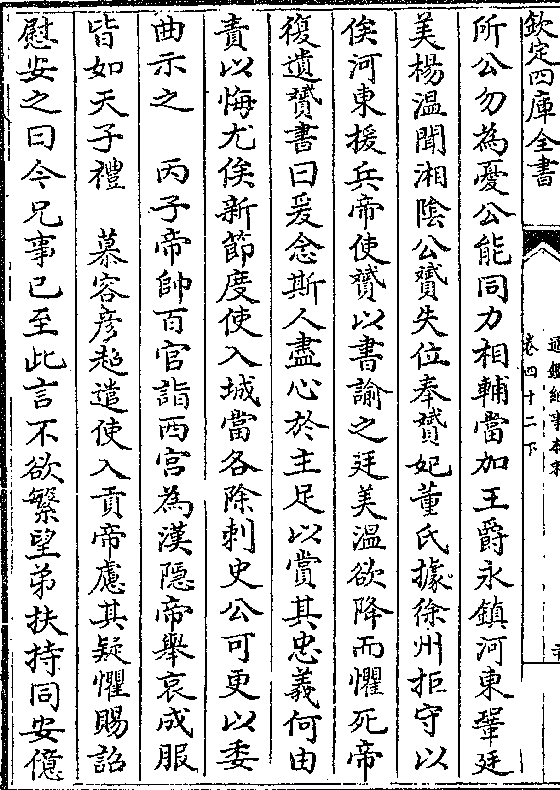 欽定四庫全書
通鑑紀事本末
卷四十二下
所公勿為憂公能同力相輔當加王爵永鎮河東鞏廷
美楊温聞湘陰公贇失位奉贇妃董氏據徐州拒守以
俟河東援兵帝使贇以書諭之廷美温欲降而懼死帝
復遺贇書曰爰念斯人盡心於主足以賞其忠義何由
責以悔尤俟新節度使入城當各除刺史公可更以委
曲示之　丙子帝帥百官詣西宫為漢隠帝舉哀成服
皆如天子禮　慕容彦超遣使入貢帝慮其疑懼賜詔
慰安之曰今兄事已至此言不欲繁望弟扶持同安億